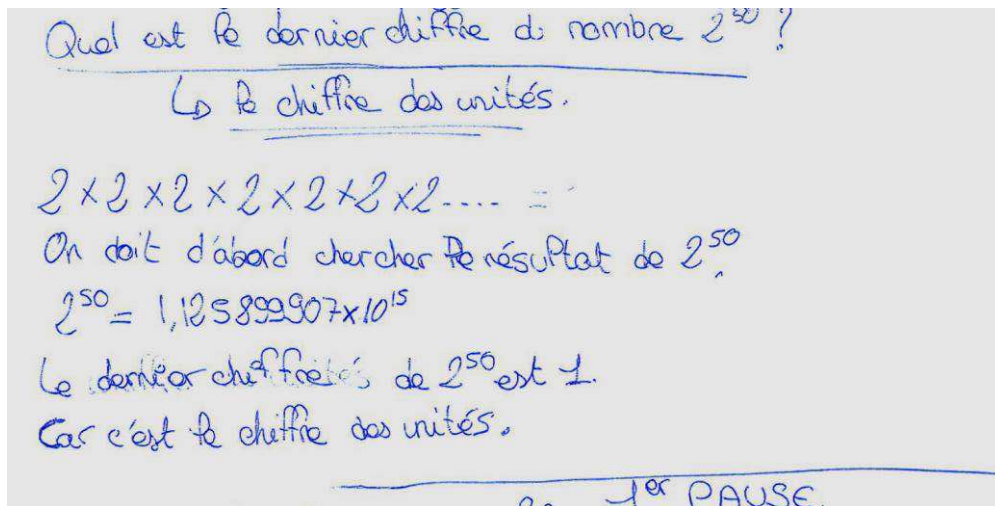 Quel est le dernier chiffre du nombre 2^50 ?
↳ le chiffre des unités.
2×2×2×2×2×2×2.... =
On doit d'abord chercher le résultat de 2^50.
2^50 = 1,125899907×10^15
Le dernier chiffre de 2^50 est 1.
Car c'est le chiffre des unités.
1er PAUSE